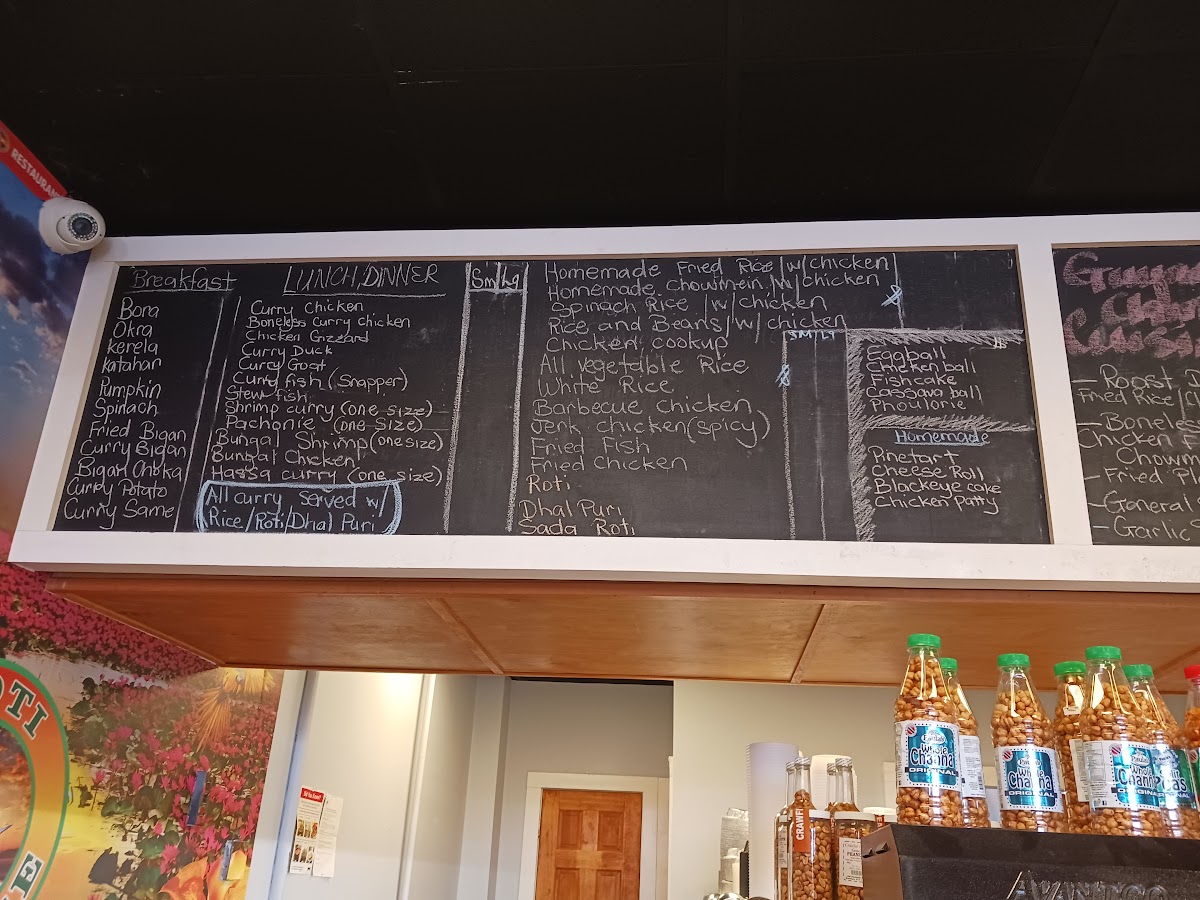 RESTAURANT
Breakfast
Bora
Okra
Kerela
Katahan
Pumpkin
Spinach
Fried Bigan
Curry Bigan
Bigan Choka
Curry Potato
Curry Same
LUNCH, DINNER
Curry Chicken
Boneless Curry Chicken
Chicken Gizzard
Curry Duck
Curry Goat
Curry fish (Snapper)
Stew fish
Shrimp curry (one size)
Pachonie (one size)
Bungal Shrimp (one size)
Bungal Chicken
Hassa curry (one size)
All curry served w/
Rice/Roti/Dhal Puri
Sm/Lg
Homemade Fried Rice /w/chicken
Homemade chowmein /w/chicken
Spinach Rice /w/chicken
Rice and Beans/w/ chicken
Chicken cookup
All vegetable Rice
White Rice
Barbecue chicken
Jerk chicken(spicy)
Fried Fish
Fried Chicken
Roti
Dhal Puri
Sada Roti
SM/Lg
$
$
Eggball
Chicken ball
Fishcake
Cassava ball
Phoulorie
Homemade
Pinetart
Cheese Roll
Blackeye cake
Chicken Patty
- Roast
Fried Rice
- Boneless
Chicken
Chowm
- Fried
- General
- Garlic
OTI
Whole
Channa
ORIGINAL
Whole
Channa
ORIGINAL
Whole
Chann
ORIGINAL
CRAWF